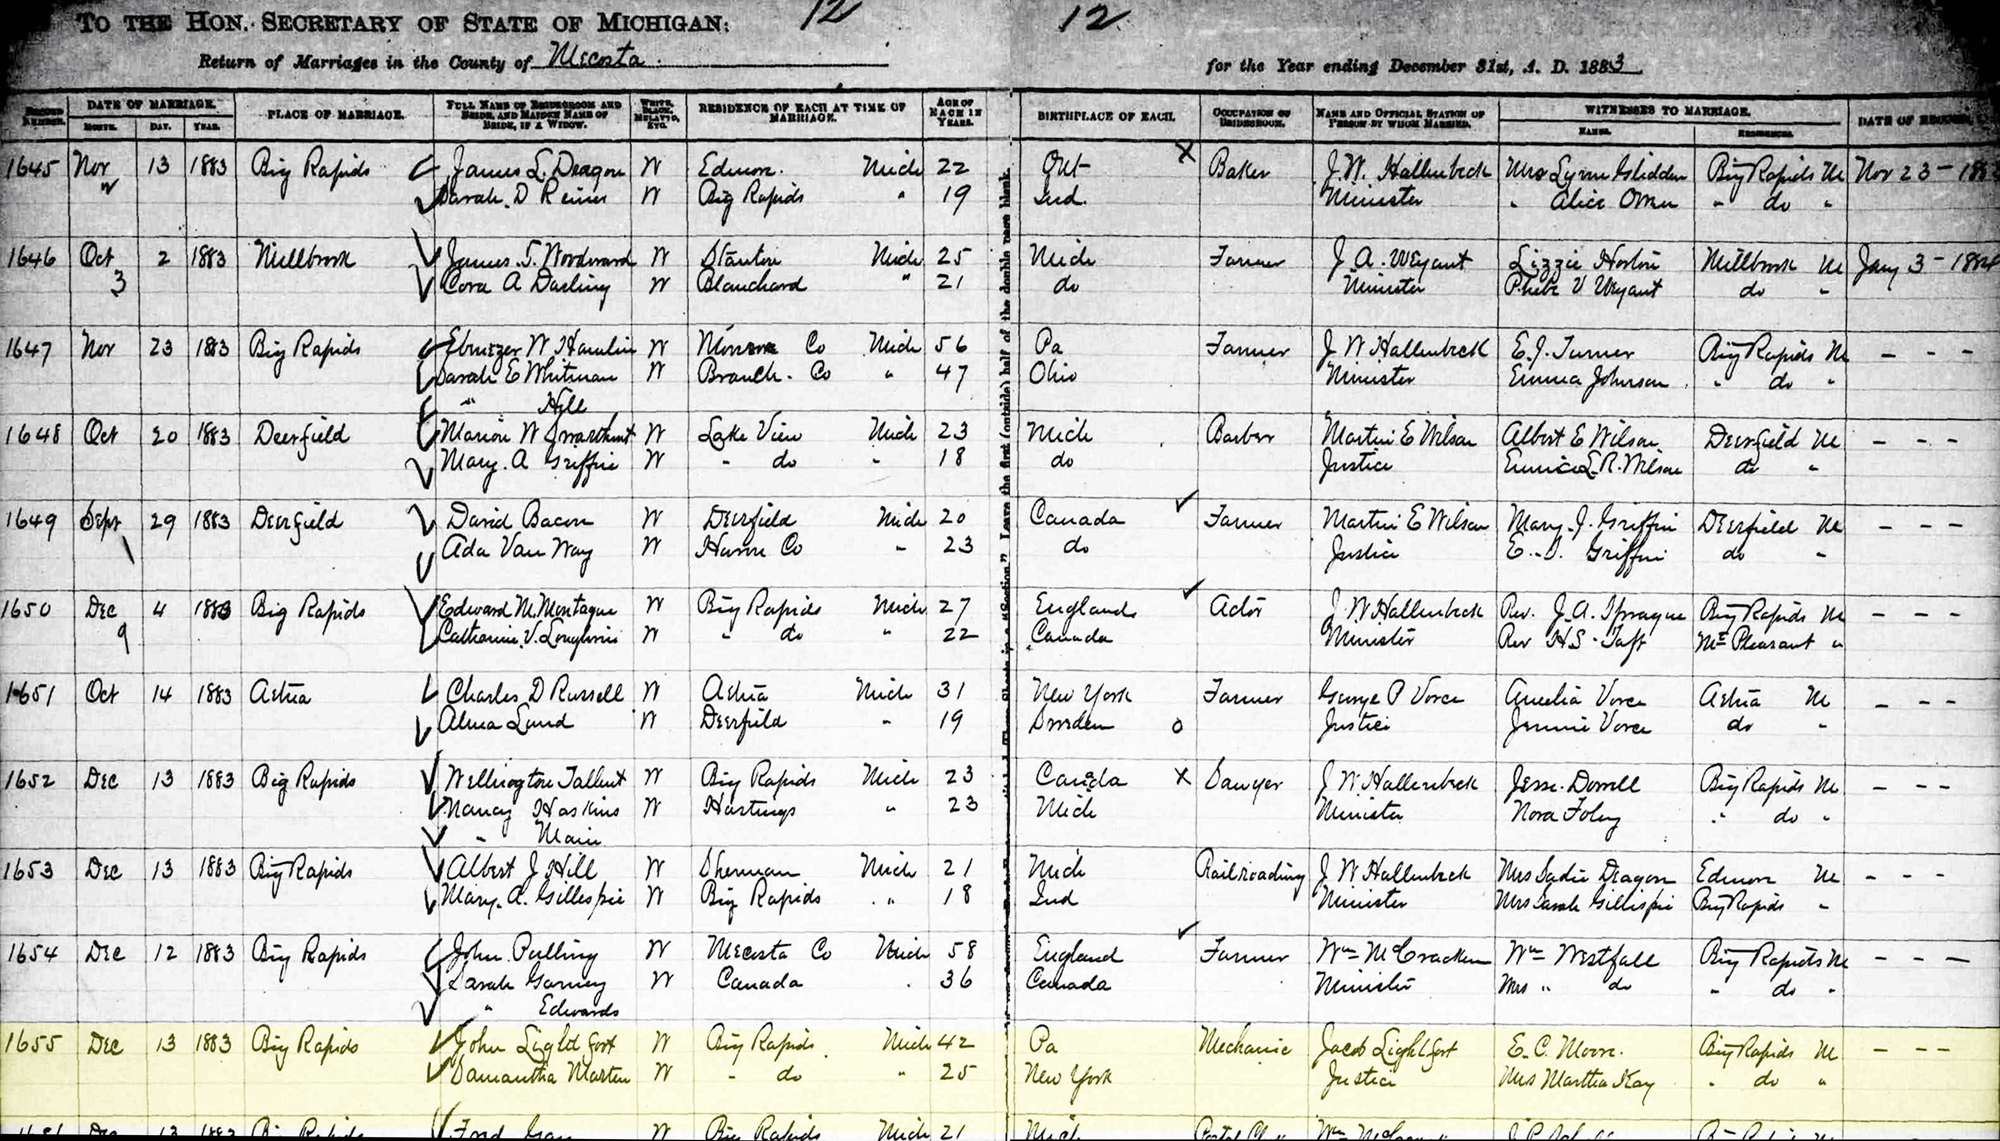 12 12
TO THE HON. SECRETARY OF STATE OF MICHIGAN:
Return of Marriages in the County of Mecosta. for the Year ending December 31st, A. D. 1883.
RECORD NUMBER. DATE OF MARRIAGE. PLACE OF MARRIAGE. FULL NAME OF BRIDEGROOM AND BRIDE, AND MAIDEN NAME OF BRIDE, IF A WIDOW. WHITE, BLACK, MULATTO, ETC. RESIDENCE OF EACH AT TIME OF MARRIAGE. AGE OF EACH IN YEARS. BIRTHPLACE OF EACH. OCCUPATION OF BRIDEGROOM. NAME AND OFFICIAL STATION OF PERSON BY WHOM MARRIED. WITNESSES TO MARRIAGE. DATE OF RECORD.
MONTH. DAY. YEAR. NAMES. RESIDENCE.
1645 Nov 13 1883 Big Rapids James L. Deagon W Edmore. Mich 22 Ont X Baker J. W. Hallenbeck Mrs Lynn Glidden Big Rapids M Nov 23 -
Sarah. D Reiner W Big Rapids " 19 Ind. Minister " Alice " do "
1646 Oct 2 1883 Millbrook James. T. Woodward W Stanton Mich 25 Mich Farmer J. A. Weyant Lizzie Horton Millbrook M Jany 3 - 1884
3 Cora A Darling W Blanchard " 21 do Minister Phebe V Weyant do "
1647 Nov 23 1883 Big Rapids Ebenezer W Hamlin W Monroe Co Mich 56 Pa Farmer J. W Hallenbeck E. J. Turner Big Rapids M - - -
Sarah E Whitman W Branch. Co " 47 Ohio Minister Emma Johnson " do "
" Hill
1648 Oct 20 1883 Deerfield Marion W W Lake View Mich 23 Mich Barber Martin E Wilson Albert E Wilson Deerfield M - - -
Mary. A Griffin W - do - 18 do Justice Eunice L. R. Wilson do "
1649 Sept 29 1883 Deerfield David Bacon W Deerfield Mich 20 Canada Farmer Martin E Wilson Mary. J. Griffin Deerfield M - - -
Ada Van Way W Huron Co " 23 do Justice E. Griffin do "
1650 Dec 4 1883 Big Rapids Edward M. Montague W Big Rapids Mich 27 England Actor J. W Hallenbeck Rev. J. A. Sprague Big Rapids M - - -
9 Catharine. V. W " do " 22 Canada Minister Rev H S - Taft Mt Pleasant "
1651 Oct 14 1883 Aetna Charles D Russell W Aetna Mich 31 New York Farmer George P Vorce Amelia Vorce Aetna M - - -
Alma Lund W Deerfield " 19 Sweden o Justice Jennie Vorce do "
1652 Dec 13 1883 Big Rapids Wellington Talbert W Big Rapids Mich 23 Canada X Sawyer J. W Hallenbeck Jesse. Dorrell Big Rapids M - - -
Nancy Haskins W Hastings " 23 Mich Minister Nora Foley " do "
" Main
1653 Dec 13 1883 Big Rapids Albert J. Hill W Sherman Mich 21 Mich Railroading J W Hallenbeck Mrs Sadie Deagon Edmore M - - -
Mary. A. Gillespie W Big Rapids " 18 Ind Minister Mrs Sarah Gillispie Big Rapids "
1654 Dec 12 1883 Big Rapids John Pulling W Mecosta Co Mich 58 England Farmer Wm McCracken Wm Westfall Big Rapids M - - -
Sarah W Canada " 36 Canada Minister Mrs " do " do "
" Edwards
1655 Dec 13 1883 Big Rapids John Lightfoot W Big Rapids. Mich 42 Pa Mechanic Jacob Lightfoot E. C. Moore. Big Rapids M - - -
Samantha Marten W - do " 25 New York Justice Mrs Martha Kay " do "
Dec 13 1883 Big Rapids W Big Rapids Mich 21 Mich
Leave the first (outside) half of the double page blank.